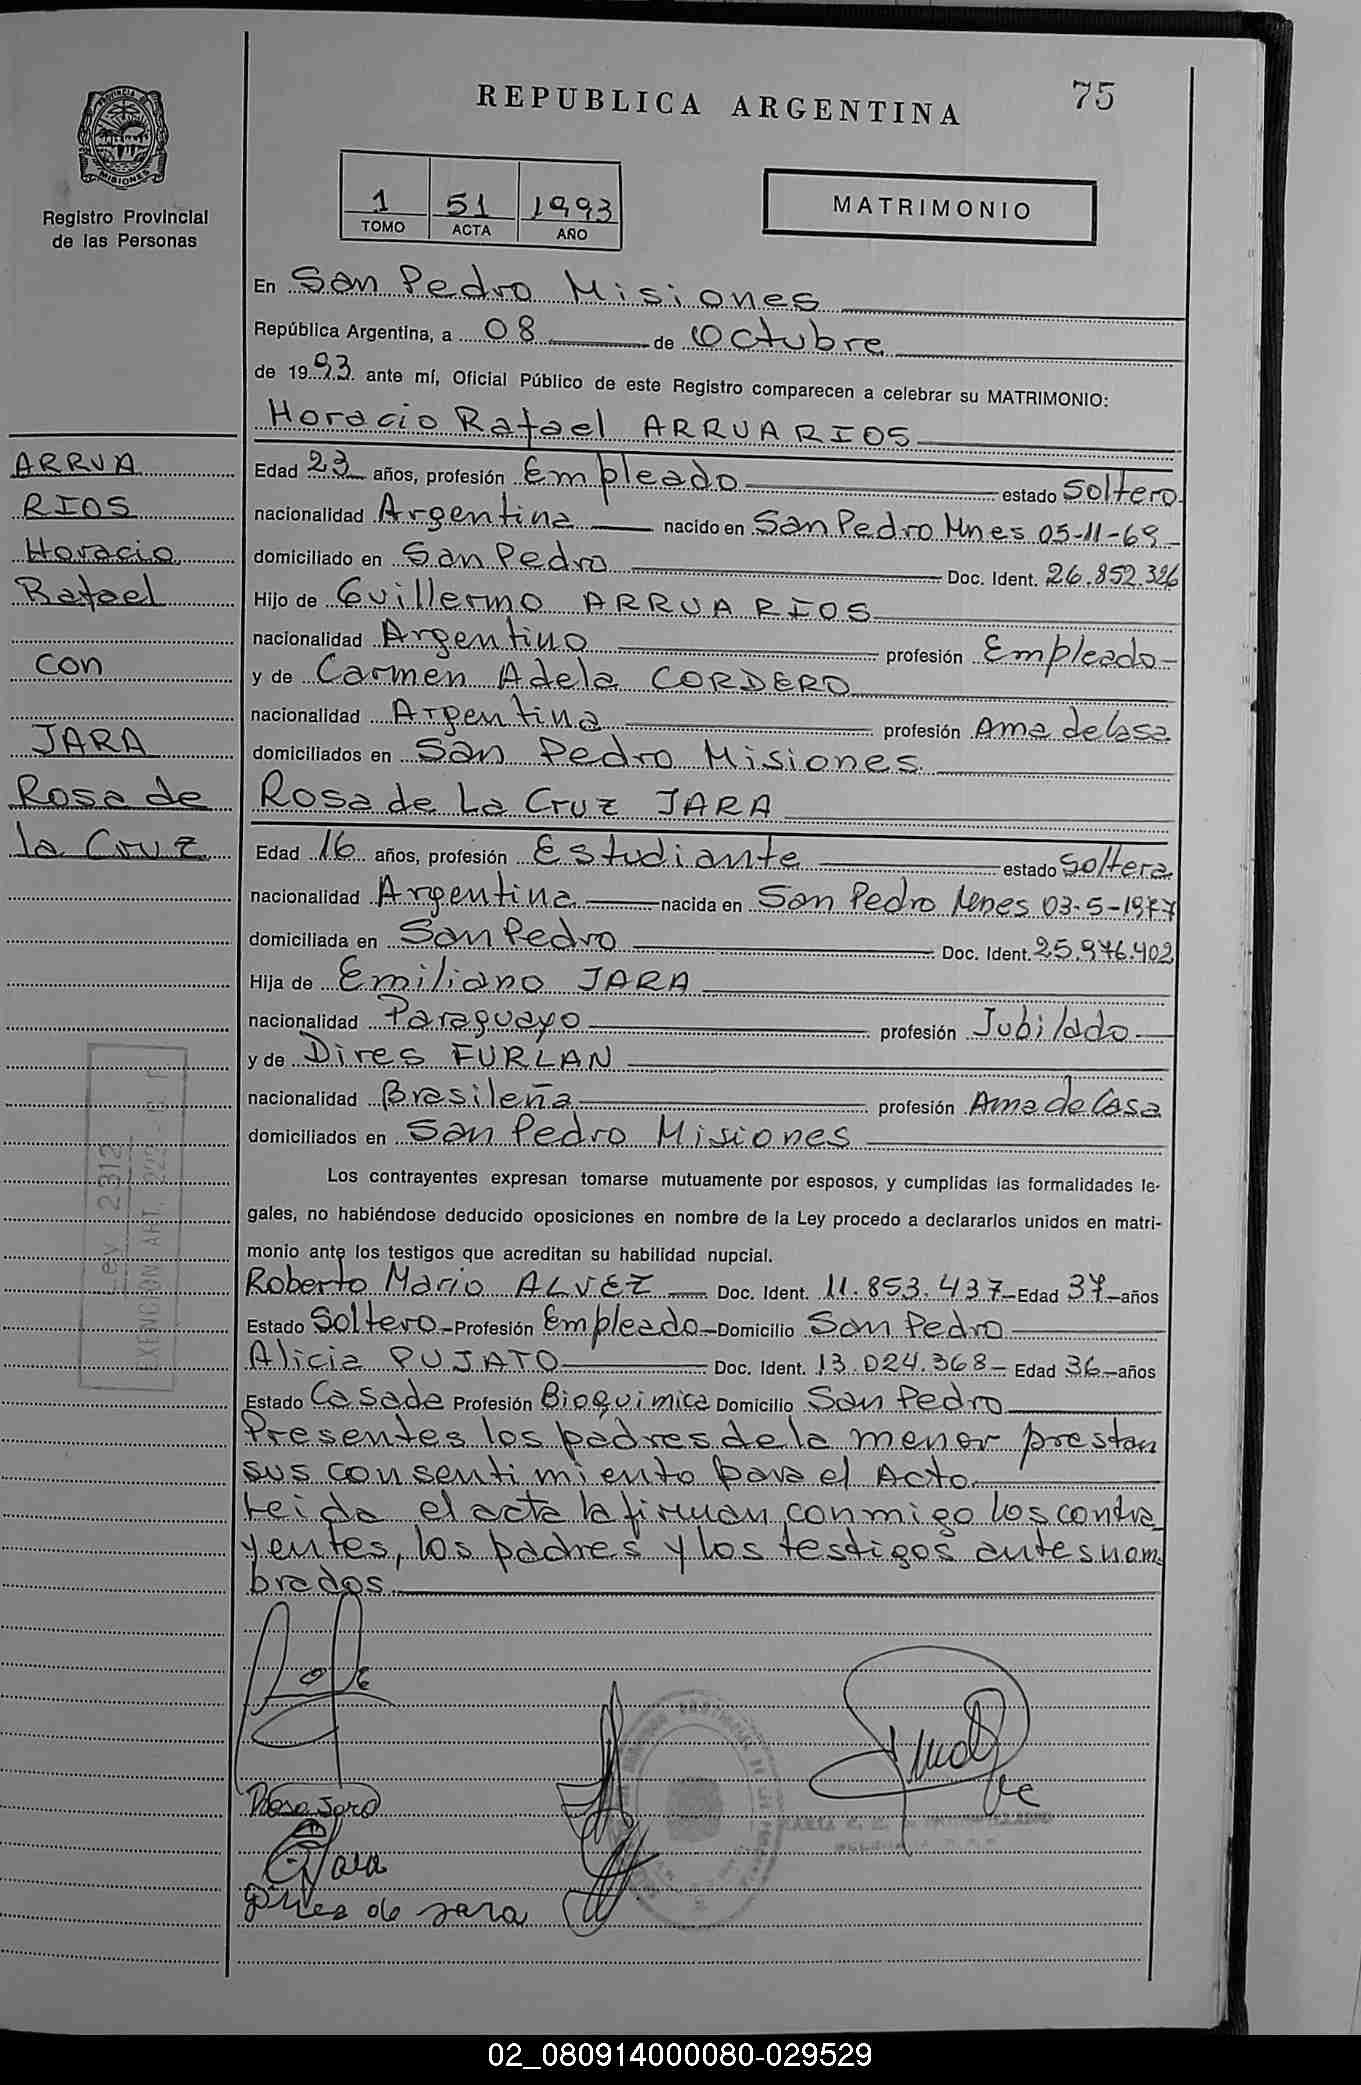 75
REPUBLICA ARGENTINA
PROVINCIA DE
MISIONES
Registro Provincial
de las Personas
1 51 1993
TOMO ACTA AÑO
MATRIMONIO
En San Pedro Misiones
República Argentina, a 08 de Octubre
de 1993 ante mí, Oficial Público de este Registro comparecen a celebrar su MATRIMONIO:
Horacio Rafael ARRUA RIOS
ARRUA
RIOS
Horacio
Rafael
con
JARA
Rosa de
la Cruz
Edad 23 años, profesión Empleado estado Soltero
nacionalidad Argentina nacido en San Pedro Mnes 05-11-69
domiciliado en San Pedro Doc. Ident. 26.852.326
Hijo de Guillermo ARRUA RIOS
nacionalidad Argentino profesión Empleado
y de Carmen Adela CORDERO
nacionalidad Argentina profesión Ama de Casa
domiciliados en San Pedro Misiones
Rosa de La Cruz JARA
Edad 16 años, profesión Estudiante estado Soltera
nacionalidad Argentina nacida en San Pedro Mnes 03-5-1977
domiciliada en San Pedro Doc. Ident. 25.976.402
Hija de Emiliano JARA
nacionalidad Paraguayo profesión Jubilado
y de Dires FURLAN
nacionalidad Brasileña profesión Ama de Casa
domiciliados en San Pedro Misiones
Los contrayentes expresan tomarse mutuamente por esposos, y cumplidas las formalidades le-
gales, no habiéndose deducido oposiciones en nombre de la Ley procedo a declararlos unidos en matri-
monio ante los testigos que acreditan su habilidad nupcial.
Roberto Mario ALVEZ Doc. Ident. 11.853.437 Edad 37 años
Estado Soltero Profesión Empleado Domicilio San Pedro
Alicia PUJATO Doc. Ident. 13.024.368 Edad 36 años
Estado Casada Profesión Bioquimica Domicilio San Pedro
Presentes los padres de la menor prestan
sus consentimiento para el Acto
Leida el acta la firman conmigo los contra
yentes, los padres y los testigos antes nom
brados
Ley 2312
EXENCION ART. 222
Rosa Jara
Jara
Dires de Jara
02_080914000080-029529